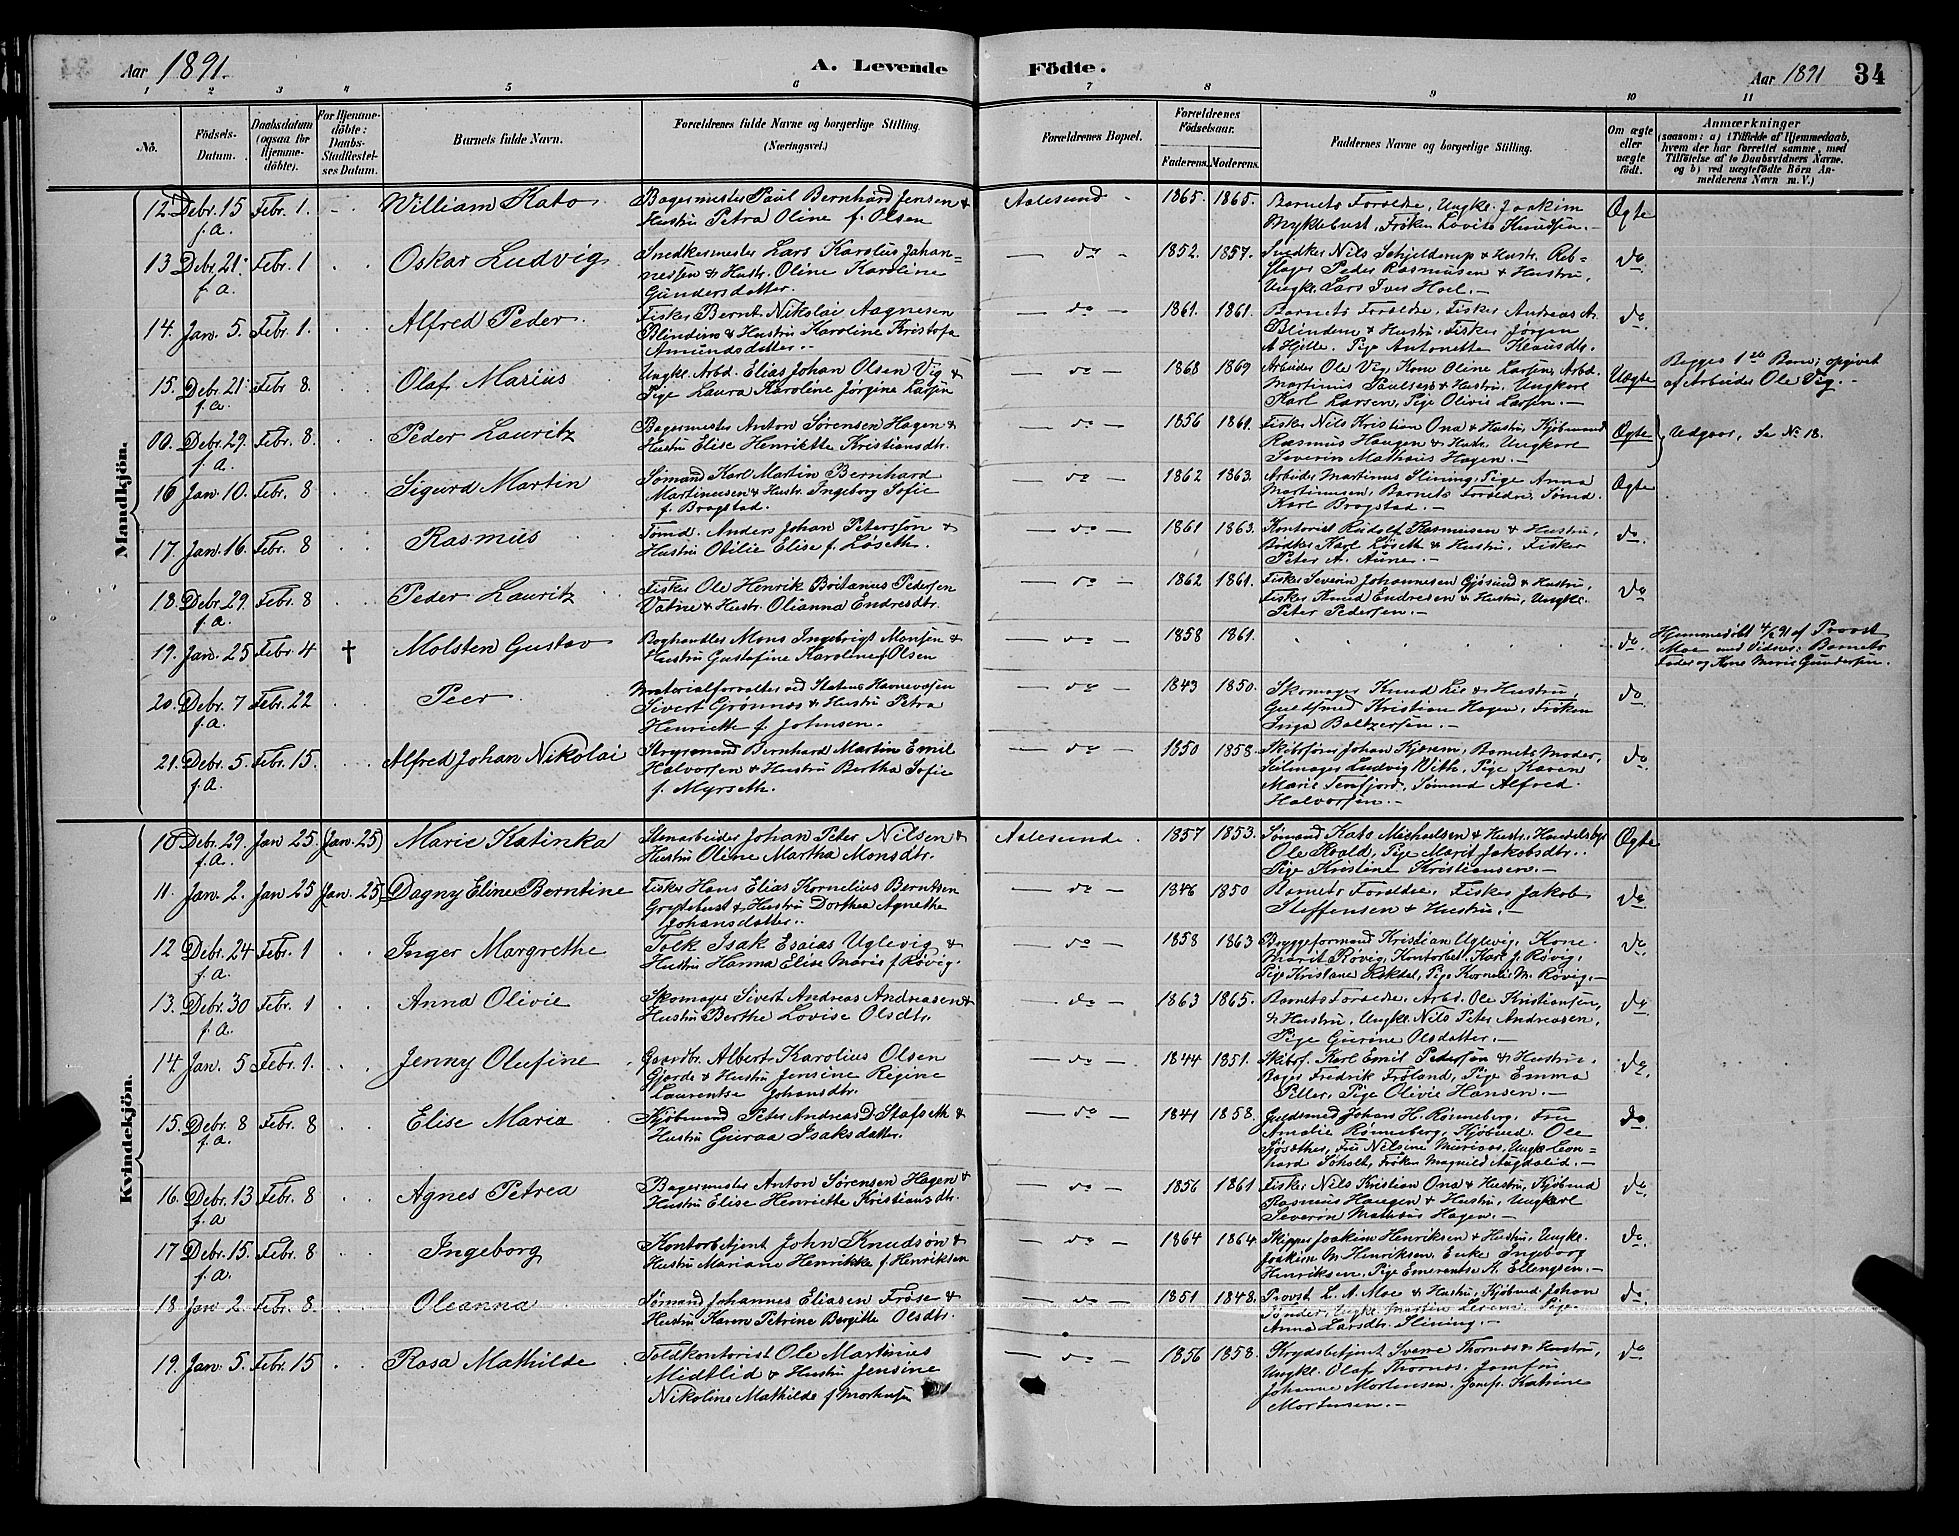 Aar 1891. A. Levende Födte. Aar 1891 34
1 2 3 4 5 6 7 8 9 10 11
No. Födsels-Datum. Daabsdatum (ogsaa for Hjemme-döbte). For Hjemme-döbte: Daabs-Stadfæstel-ses Datum. Barnets fulde Navn. Forældrenes fulde Navne og borgerlige Stilling. (Næringsvei.) Forældrenes Bopæl. Forældrenes Födselsaar. Faderens. Moderens. Faddernes Navne og borgerlige Stilling. Om ægte eller uægte födt. Anmærkninger (saasom: a) i Tilfælde af Hjemmedaab, hvem der har forrettet samme, med Tilföielse af to Daabsvidners Navne. og b) ved uægtefödte Börn An-melderens Navn m. V.)
Mandkjön.
12. Debr. 15 Febr. 1. - William Kato Bagermester Paul Bernhard Jensen & Aalesund 1865. 1865. Barnets Forældre, Ungk. Joakim Ægte
f. a. Hustru Petra Oline f. Olsen Myklebust, Frøken Lovise Knudsen.
13 Debr. 21. Febr. 1 Oskar Ludvig Snedkermester Lars Karolus Johan- do 1852. 1857. Snedker Nils Schjelderup & Hustr. Reb- do
f. a. nessen & Hustr. Oline Karoline slager Peder Rasmussen & Hustru,
Gundersdatter. Ungk. Lars Iver Hoel.
14. Jan. 5. Febr. 1. Alfred Peder Fisker Bernt Nikolai Aagnesen do 1861. 1861. Barnets Forældre, Fisker Andreas A. do
Blindem & Hustru Karoline Kristofa Blindem & Hustru. Fisker Jørgen
Amundsdatter. A Hjelle. Pige Antonette Klausdtr.
15. Debr. 21. Febr 8. Olaf Marius Ungk. Arbd. Elias Johan Olsen Vig & do 1868 1869 Arbeider Ole Vig, Kone Oline Larsen, Arbd. Uægte Begges 1ste Barn; opgivet
f. a. Pige Laura Karoline Jørgine Larsen Martinus Paulsen & Hustru, Ungkarl af Arbeider Ole Vig.
Karl Larsen, Pige Olivie Larsen.
00. Debr. 29. Febr. 8. Peder Lauritz Bagermester Anton Sørensen Hagen & do 1856 1861. Fisker Nils Kristian Ona & Hustru, Kjøbmand Ægte Udgaar, Se No. 18.
f. a. Hustru Elise Henriette Kristiansdtr. Rasmus Haugen & Hustr. Ungkarl
Severin Mathæus Hagen.
16 Jan. 10. Febr. 8 Sigurd Martin Sømand Karl Martin Bernhard do 1862 1863. Arbeider Martinus Slining, Pige Anna Ægte
Martinusen & Hustr. Ingeborg Sofie Martinusen, Barnets Forældre, Sømd.
f. Bragstad. Karl Bragstad.
17. Jan. 16. Febr. 8 Rasmus Tømd. Anders Johan Peterssøn & do 1861 1863. Kontorist Rudolf Rasmusen & Hustru, do.
Hustru Otilie Elise f. Løseth. Bødker Karl Løseth & Hustru, Fisker
Peter A. Aune.
18. Debr. 29. Febr. 8 Peder Lauritz Fisker Ole Henrik Boitanus Pedersen do 1862 1861. Fisker Severin Johannesen Gjøsund & Hustru, do
f. a. Vatne & Hustr. Olianna Endresdtr. Fisker Knud Endresen & Hustru, Ungk.
Peter Pedersen.
19. Jan. 25 Febr. 4 † Molsten Gustav Boghandler Mons Ingebrigt Monsen & do 1858 1861. do. Hjemmedøbt 4/2 91 af Provst
Hustru Gustafine Karoline f. Olsen Moe med Vidner: Barnets
Fader og Kone Marie Gundersen.
20. Debr. 7 Febr. 22 Peer Materialforvalter ved Statens Havnevæsen do 1843 1850. Skomager Knud Lie & Hustru, do
f. a. Sivert Grønnæs & Hustru Petra Guldsmed Kristian Hagen, Frøken
Henriette f. Johnsen. Inga Baltzersen.
21. Debr. 5. Febr. 15. Alfred Johan Nikolai Styrmand Bernhard Martin Emil do 1850 1858. Skibsfører Johan Kjærem, Barnets Moder, do
f. a. Halvorsen & Hustru Bertha Sofie Seilmager Ludvig With, Pige Karen
f. Myrseth. Marie Tenfjord, Sømand Alfred
Halvorsen.
Kvindekjön.
10 Debr. 29. Jan 25. (Jan. 25) Marie Katinka Stenarbeider Johan Peter Nilsen & Aalesund 1857 1853. Sømand Kato Michaelsen & Hustr., Handelsby. Ægte
f. a. Hustru Oline Martha Monsdtr. Ole Roald, Pige Marit Jakobsdtr.
Pige Kristine Kristiansen.
11. Jan. 2. Jan 25 (Jan. 25) Dagny Eline Berntine Fisker Hans Elias Kornelius Berntsen do 1846 1850 Barnets Forældre, Fisker Jakob do.
Grytebust & Hustru Dorthea Agnethe Steffensen & Hustru.
Johansdatter.
12 Debr. 24 Febr. 1 Inger Margrethe Tolk Isak Esaias Uglevig & do 1858 1863 Bryggeformand Kristian Uglevig, Kone do
f. a. Hustru Hanna Elise Marie f. Røvig. Marit Røvig, Kontorbet. Karl J. Røvig,
Pige Kristane Rekdal, Pige Kornelie M. Røvig.
13. Debr. 30 Febr. 1 Anna Olivie Skomager Sivert Andreas Andreasen & do 1863 1865. Barnets Forældre, Arbd. Ole Kristiansen, do.
f. a. Hustru Berthe Lovise Olsdtr. & Hustru, Ungk. Nils Peter Andreasen,
Pige Gurine Olsdatter.
14 Jan. 5 Febr. 1. Jenny Olufine Gaardbr. Albert Karolius Olsen do 1844 1851. Skibsf. Karl Emil Pedersen & Hustru, do.
Gjerde & Hustru Jensine Regine Bager Fredrik Frøland, Pige Emma
Laurentse Johansdtr. Piller, Pige Olivie Hansen.
15. Debr. 8 Febr. 8 Elise Maria Kjøbmand Peter Andreas D. Stafseth & do 1841 1858. Guldsmed Johan H. Rønneberg, Frue do
f. a. Hustru Guraa Isaksdatter. Amalie Rønneberg, Kjøbmd. Ole
hard Søholt, Frøken Magnild Aagdalid.
16. Debr. 13 Febr. 8 Agnes Petrea Bagermester Anton Sörensen Hagen & do 1856 1861 Fisker Nils Kristian Ona & Hustru, Kjøbmd do.
f. a Hustru Elise Henriette Kristiansdtr. Rasmus Haugen & Hustru, Ungkarl
Severin Mathæus Hagen.
17 Debr. 15. Febr. 8 Ingeborg Kontorbetjent John Knudsøn & do 1864 1864. Skipper Joakim Henriksen & Hustru, Ungk. do.
f. a. Hustru Mariane Henrikke f. Henriksen Joakim M. Henriksen, Enke Ingeborg
Henriksen, Pige Emerentse A. Ellengsen.
18 Jan 2. Febr. 8. Oleanna Sømand Johannes Eliasen Frøse & do 1851 1848. Provst L. A. Moe & Hustru, Kjøbmd. Johan do.
Hustru Karen Petrine Bergitte Olsdtr. Tønder, Ungk. Martin Lerem, Pige
Anna Larsdtr. Slining.
19. Jan. 5. Febr. 15 Rosa Mathilde Toldkontorist Ole Martinus do 1856 1858. Krydsbetjent Sverre Thornæs & Hustru, do
Midtlid & Hustru Jensine Ungk. Olaf Thornæs, Jomfru
Nikoline Mathilde f. Morkusen Johanne Mortensen, Jomfr. Katrine
Mortensen.